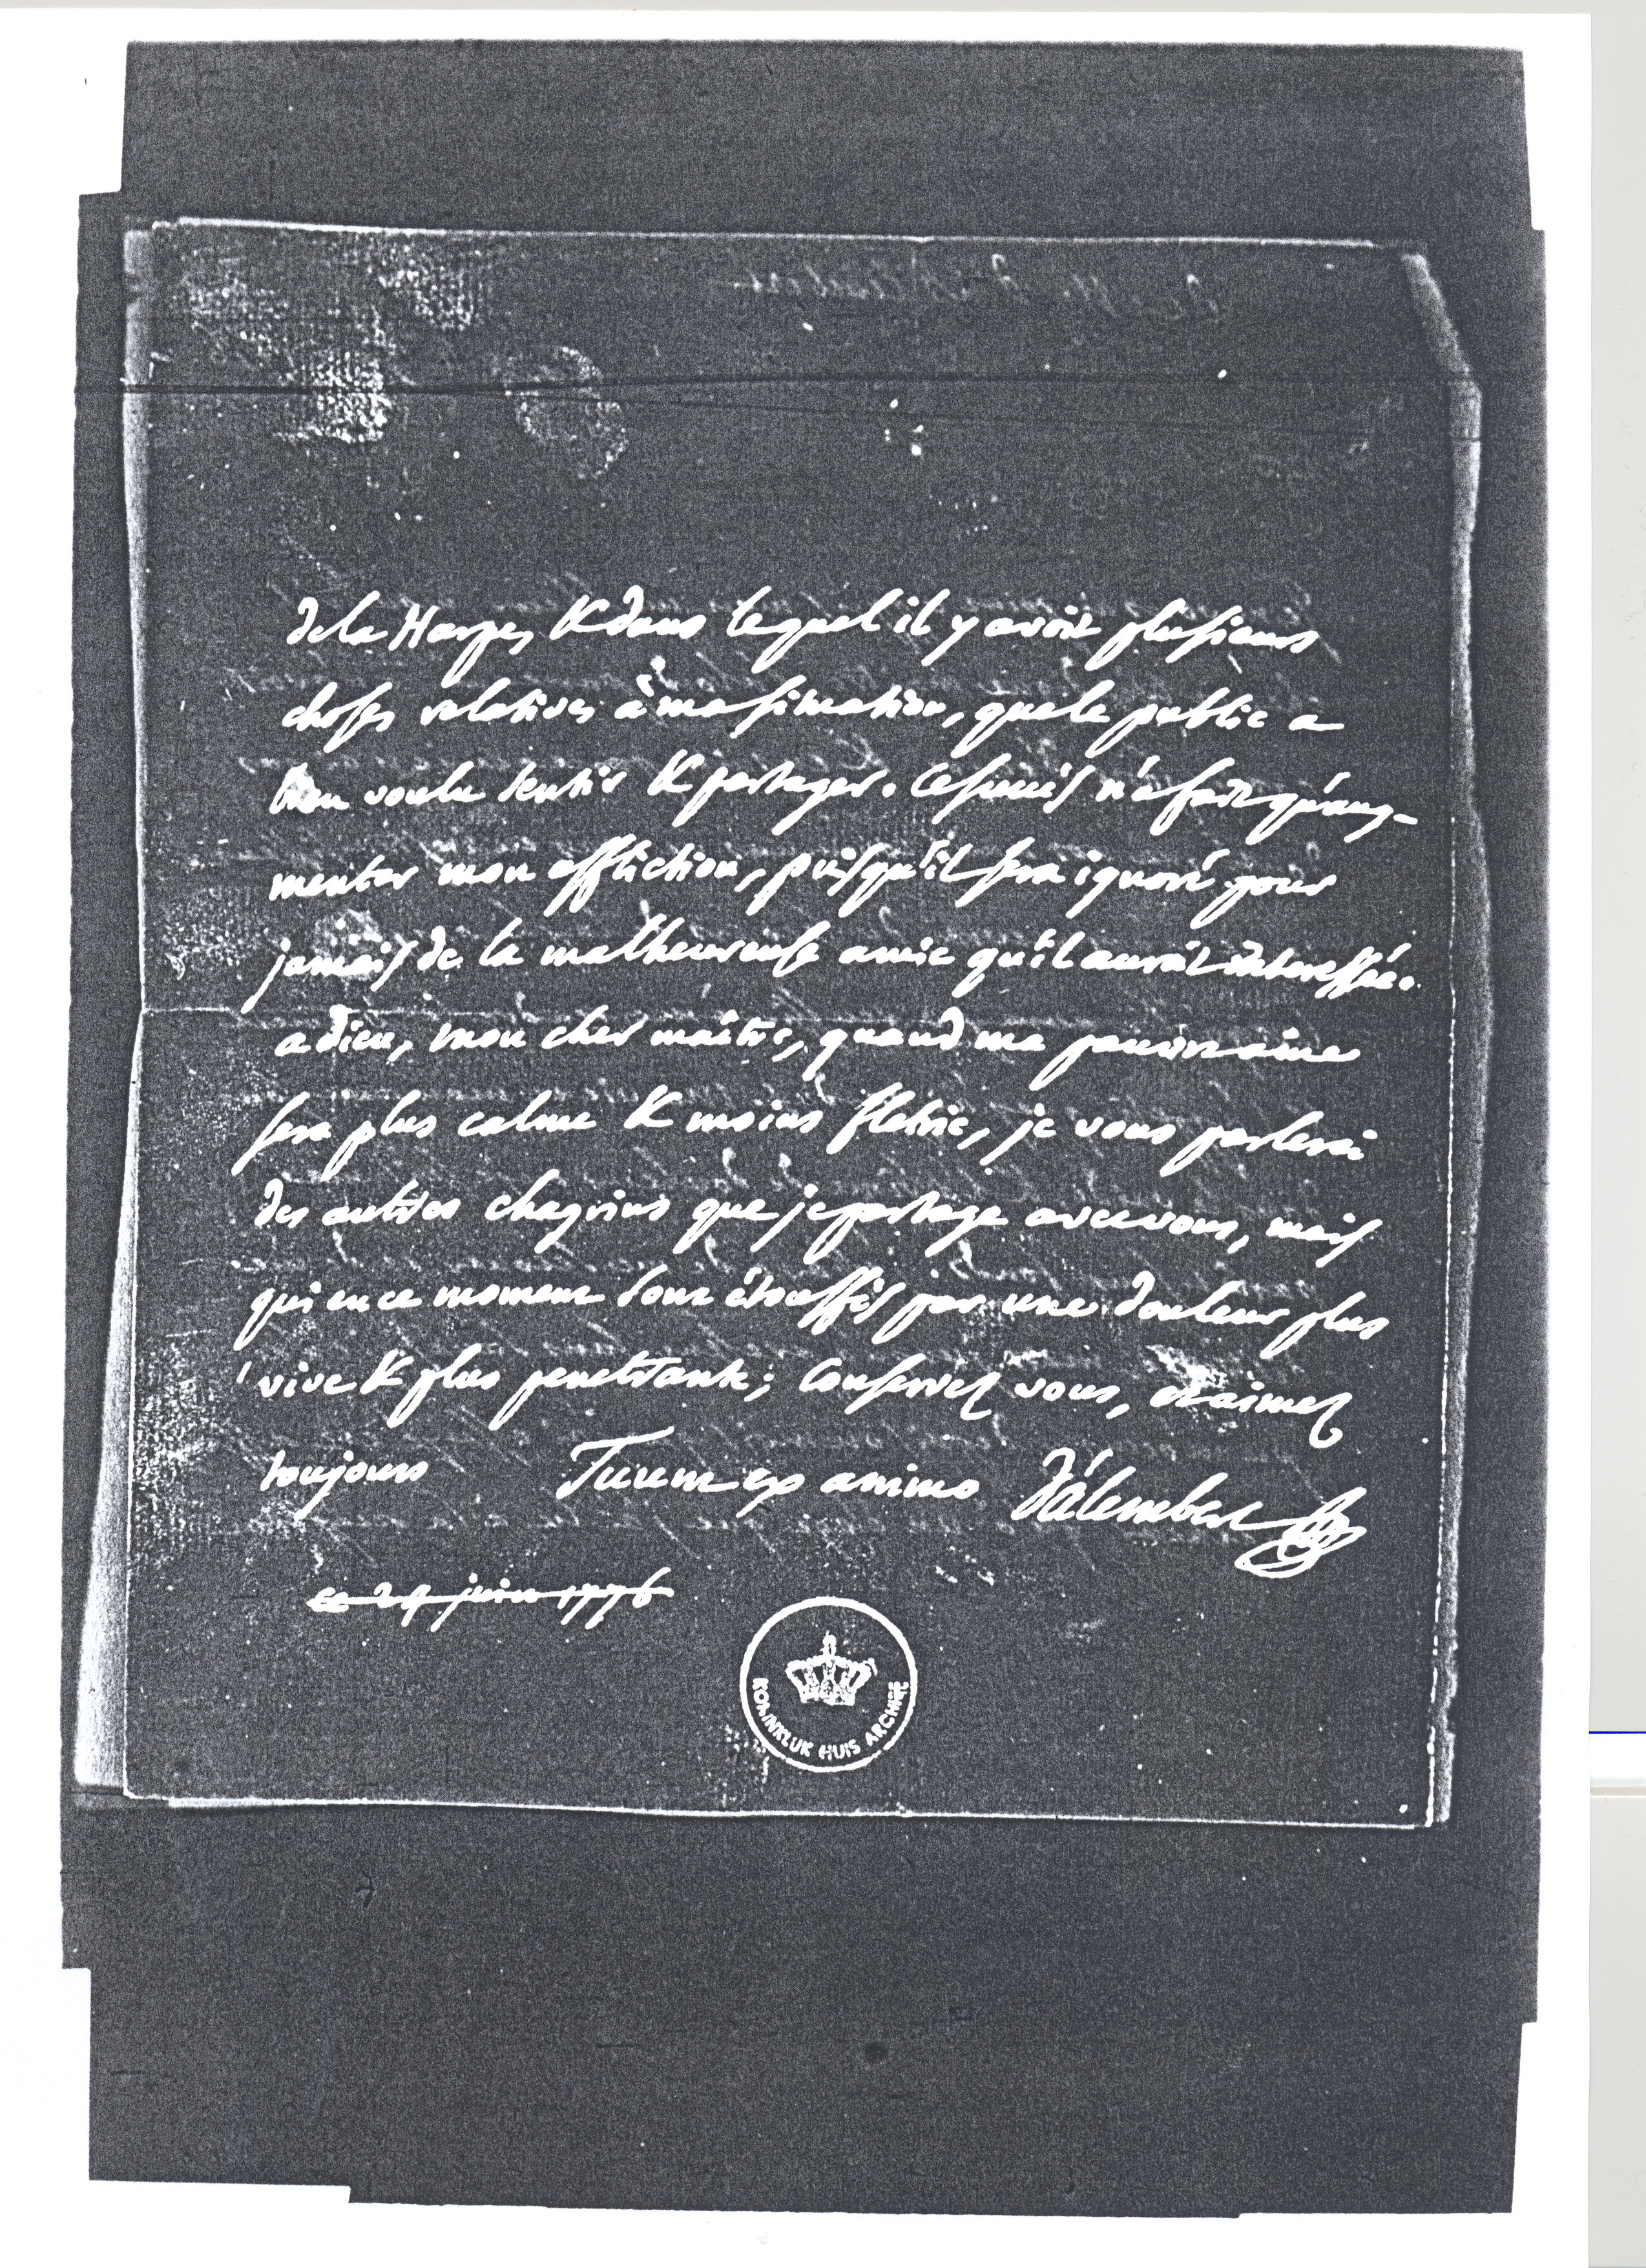 de la Harpe, & dans lequel il y avoit plusieurs
choses relatives à ma situation, que le public a
bien voulu sentir & partager. Ce succès n'a fait qu'aug-
menter mon affliction, puisqu'il sera ignoré pour
jamais de la malheureuse amie qu'il auroit interessée.
adieu, mon cher maître, quand ma pauvre ame
sera plus calme & moins fletrie, je vous parlerai
des autres chagrins que je partage avec vous, mais
qui en ce moment sont étouffés par une douleur plus
vive & plus penetrante; conservez vous, et aimez
toujours Tuum ex animo D'Alembert
ce 24 juin 1776
KONINKLIJK HUIS ARCHIEF